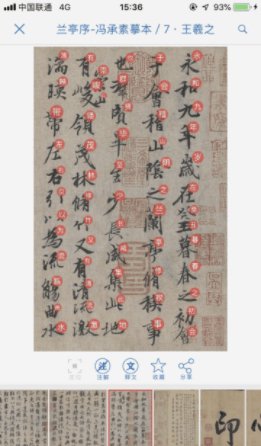 中国联通 4G 15:36 93%
兰亭序-冯承素摹本 / 7 · 王羲之
永和九年歲在癸丑暮春之初會
于會稽山陰之蘭亭脩稧事
也群賢畢至少長咸集此地
有崇山峻領茂林脩竹又有清流激
湍暎帶左右引以為流觴曲水
注解 释文 收藏 分享